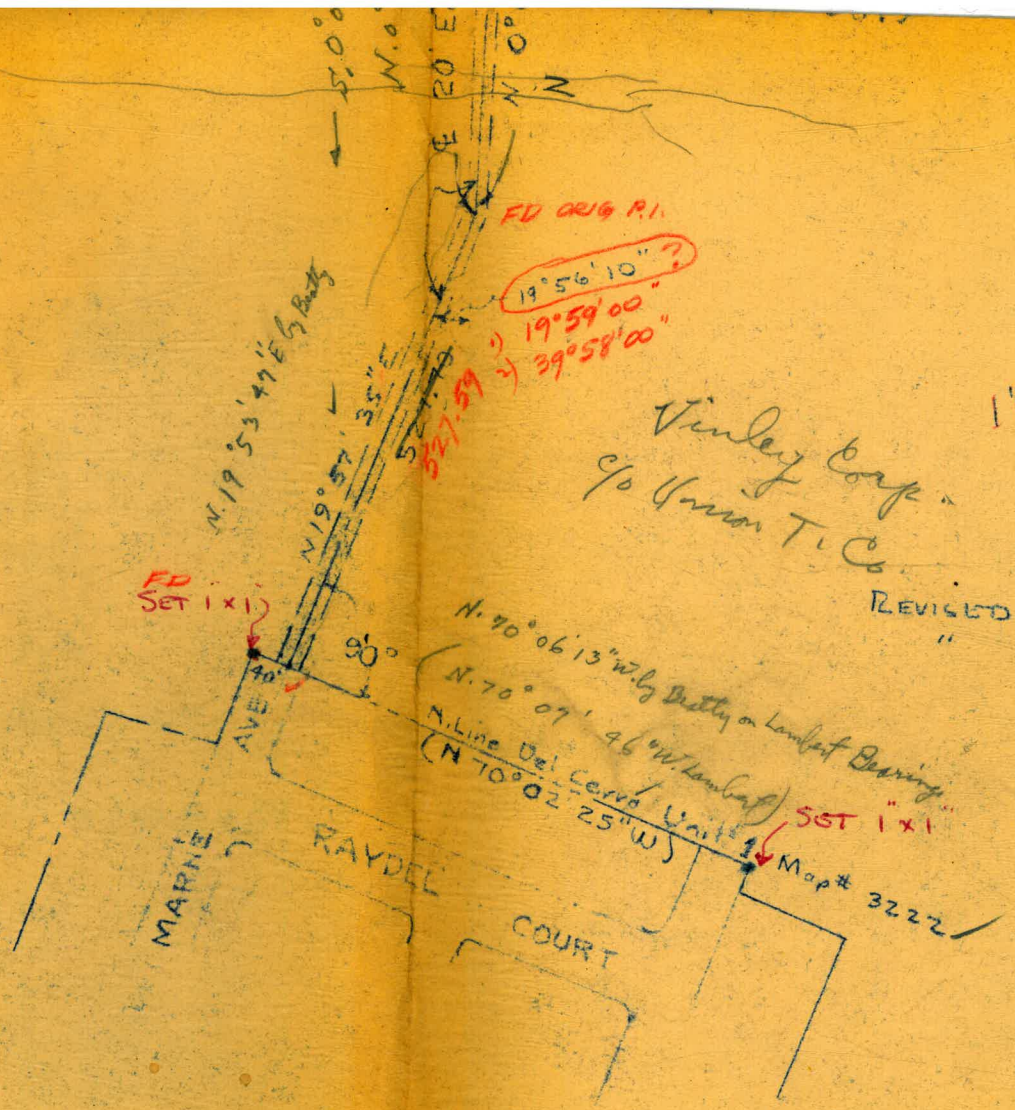 S.0°0
N.0°
₠ 20' E
N 0°
N
FD ORIG P.I.
19°56'10" ?
1) 19°59'00"
2) 39°58'00"
N.19°53'47"E by Beatty
N19°57' 35"E
527.59
Vinley Corp.
c/o Union T. Co
1"
REVISED
"
FD
SET 1"x1"
40'
90°
N.70°06'13"W. by Beatty on Lambert Bearings
(N.70°07' 46"W. Lambert)
N. Line Del Cervo Unit #1 Map # 3222
(N 70°02'25"W)
SET 1"x1"
MARNE AVE
RAYDEL COURT